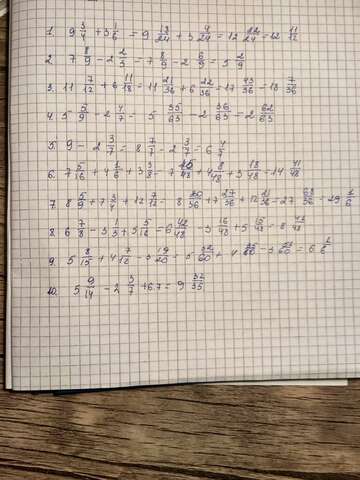 1. 9 3/4 + 3 1/6 = 9 18/24 + 3 4/24 = 12 22/24 = 12 11/12
2. 7 8/9 - 2 2/3 = 7 8/9 - 2 6/9 = 5 2/9
3. 11 7/12 + 6 11/18 = 11 21/36 + 6 22/36 = 17 43/36 = 18 7/36
4. 5 5/9 - 2 4/7 = 5 35/63 - 2 36/63 = 2 62/63
5. 9 - 2 3/7 = 8 7/7 - 2 3/7 = 6 4/7
6. 7 5/16 + 4 1/6 + 3 3/8 = 7 15/48 + 4 8/48 + 3 18/48 = 14 41/48
7. 8 5/9 + 7 3/4 + 12 7/12 = 8 20/36 + 7 27/36 + 12 21/36 = 27 68/36 = 29 1/6
8. 6 7/8 - 3 1/3 + 5 5/16 = 6 42/48 - 3 16/48 + 5 15/48 = 8 41/48
9. 5 8/15 + 4 7/12 - 3 19/20 = 5 32/60 + 4 35/60 - 3 57/60 = 6 1/6
10. 5 9/14 - 2 3/7 + 6.7 = 9 32/35